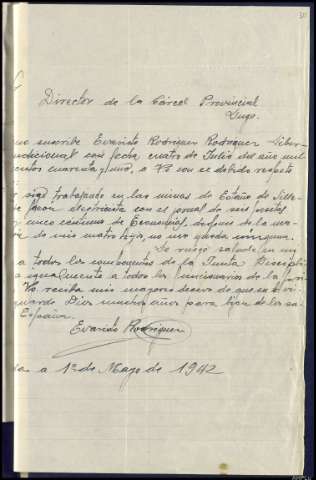 Director de la Cárcel Provincial
Lugo.
suscribe Evaristo Rodriguez Rodriguez liber-
ndicional con fecha cuatro de Julio del año mil
cientos cuarenta y uno, a Vd con el debido respeto
sigo trabajando en las minas de Estaño de Sille-
electricista con el jornal de seis pesetas
y cinco centimos de Economias, despues de la ma-
de mis cuatro hijos, no me queda ninguna.
Le ruego salude en mi
a todos los componentes de la Junta Discipli
igualmente a todos los funcionarios de la
Vd reciba mis mayores deseos de que su vi
guarde Dios muchos años para bien de los
España.
Evaristo Rodriguez
a 1º de Mayo de 1942